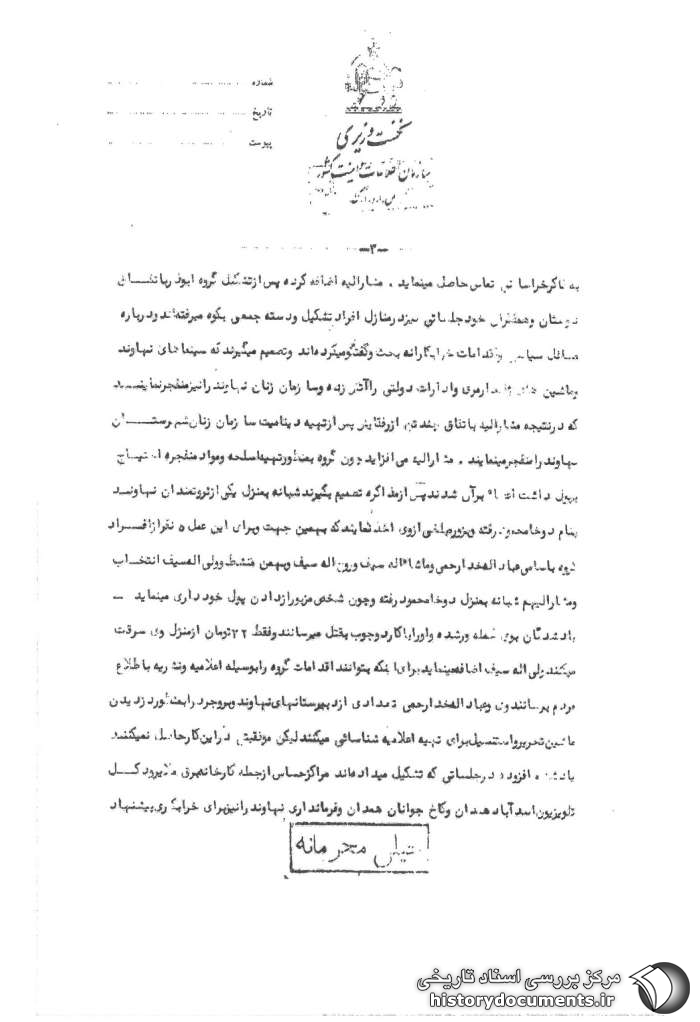 شماره
تاریخ
پیوست
نخست وزیری
سازمان اطلاعات و امنیت کشور
س.ا.و.ا.ک
-۳-
تماس حاصل مینماید . مشارالیه اضافه کرده پس از تشکیل گروه ابوذر باتفاق
دوستان وهمفکران خود جلساتی نیز در منازل افراد تشکیل ودسته جمعی بکوه میرفته‌اند و درباره
مسائل سیاسی واقدامات خرابکارانه بحث وگفتگو میکرده‌اند وتصمیم میگیرند که سینماهای نهاوند
وماشین های ژاندارمری وادارات دولتی را آتش زده وسازمان زنان نهاوند را نیز منفجر نمایند
که در نتیجه مشارالیه باتفاق چند تن از رفقایش پس از تهیه دینامیت سازمان زنان شهرستان
نهاوند را منفجر مینمایند . مشارالیه می افزاید چون گروه بمنظور تهیه اسلحه ومواد منفجره احتیاج
بپول داشت اعضاء برآن شدند پس از مذاکره تصمیم بگیرند شبانه بمنزل یکی از ثروتمندان نهاوند
بنام دوخامحمود رفته وبزور مبلغی ازوی اخذ نمایند که بهمین جهت وبرای این عمل ۵ نفر از افراد
گروه باسامی عباداله خدارحمی وماشاءاله سیف وروح اله سیف وبهمن منشط وولی اله سیف انتخاب
ومشارالیهم شبانه بمنزل دوخامحمود رفته وچون شخص مزبور از دادن پول خودداری مینماید –
یادشدگان بوی حمله ورشده واورا با کارد وچوب بقتل میرسانند وفقط ۲۲ تومان از منزل وی سرقت
میکنند ولی اله سیف اضافه مینماید برای اینکه بتوانند اقدامات گروه را بوسیله اعلامیه ونشریه باطلاع
مردم برسانند وی وعباداله خدارحمی تعدادی از دبیرستانهای نهاوند وبروجرد را بمنظور دزدیدن
ماشین تحریر واستنسیل برای تهیه اعلامیه شناسائی میکنند لیکن موفقیتی در این کار حاصل نمیکنند
یادشده افزوده در جلساتی که تشکیل میداده‌اند مراکز حساس از جمله کارخانه برق ملایر ودکل
تلویزیون اسدآباد همدان وکاخ جوانان همدان وفرمانداری نهاوند را نیز برای خرابکاری پیشنهاد
خیلی محرمانه
مرکز بررسی اسناد تاریخی
historydocuments.ir